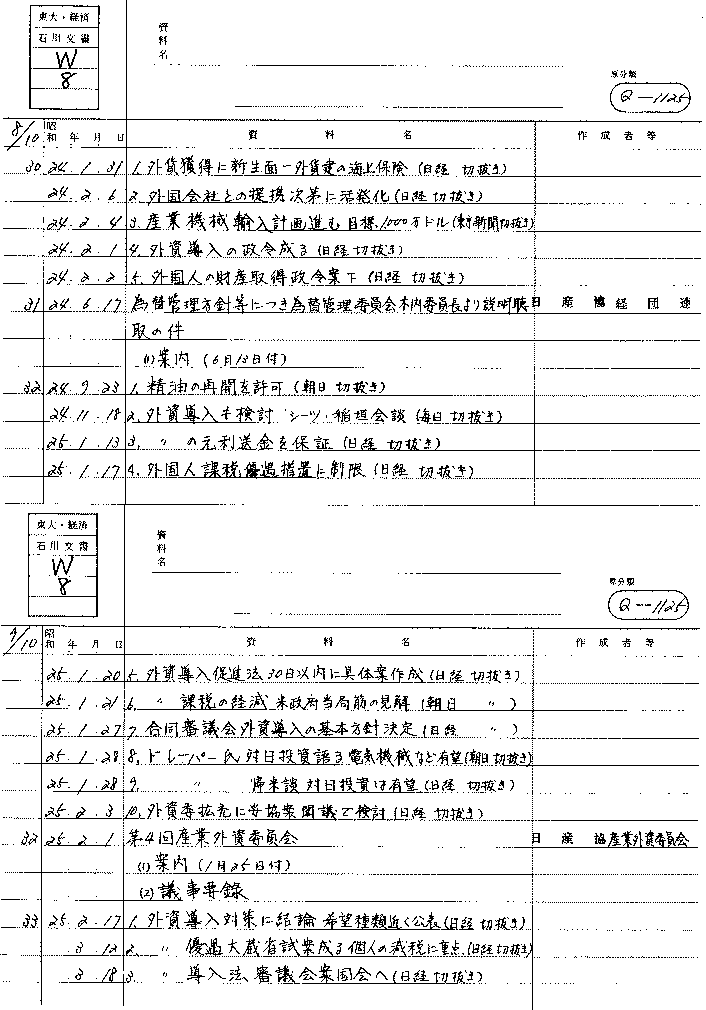 東大・経済
石川文書
W
8
資料名
原分類
Q-1125
8/10
昭和 年 月 日 資料名 作成者等
30 24.1.31 1.外貨獲得に新生面-外貨建の海上保険(日経 切抜き)
24.2.6 2.外国会社との提携次第に活発化(日経 切抜き)
24.2.4 3.産業機械輸入計画進む目標1000万ドル(東京新聞切抜き)
24.2.1 4.外資導入の政令成る(日経 切抜き)
24.2.2 5.外国人の財産取得政令案下(日経 切抜き)
31 24.6.17 為替管理方針等につき為替管理委員会木内委員長より説明聴 日産協 経団連
取の件
(1)案内(6月13日付)
32 24.9.23 1.精油の再開を許可(朝日 切抜き)
24.11.18 2.外資導入も検討 シーツ・稲垣会談(毎日 切抜き)
25.1.13 3. 〃 の元利送金を保証(日経 切抜き)
25.1.17 4.外国人課税優遇措置に制限(日経 切抜き)
東大・経済
石川文書
W
8
資料名
原分類
Q-1125
9/10
昭和 年 月 日 資料名 作成者等
25.1.20 5.外資導入促進法30日以内に具体案作成(日経 切抜き)
25.1.21 6. 〃 課税の軽減 米政府当局筋の見解(朝日 〃)
25.1.27 7.合同審議会外資導入の基本方針決定(日経 〃)
25.1.28 8.ドレーパー氏対日投資語る電気機械など有望(朝日切抜き)
25.1.28 9. 〃 帰米談 対日投資は有望(日経 切抜き)
25.2.3 10.外資委拡充に妥協案 閣議で検討(日経 切抜き)
32 25.2.1 第4回産業外資委員会 日産協産業外資委員会
(1)案内(1月25日付)
(2)議事要録
33 25.2.17 1.外資導入対策に結論 希望種類近く公表(日経 切抜き)
3.12 2. 〃 優遇大蔵省試案成る個人の減税に重点(日経切抜き)
3.18 3. 〃 導入法、審議会案国会へ(日経 切抜き)